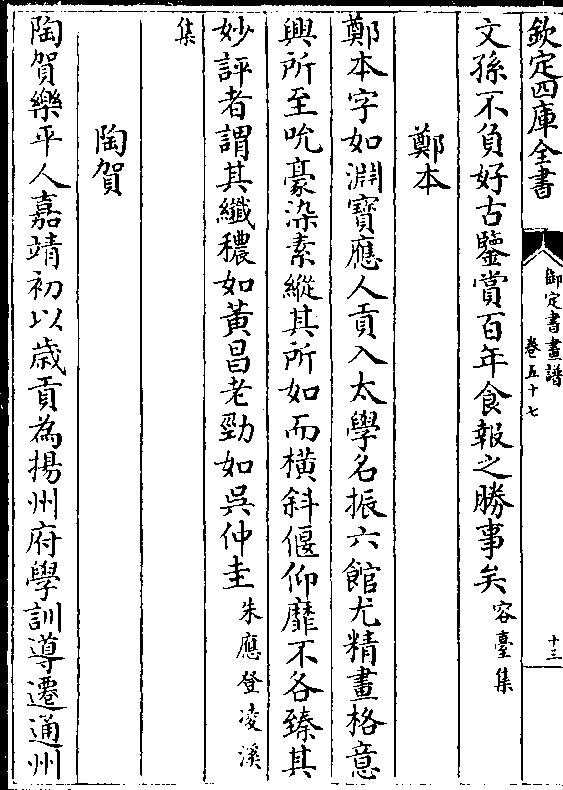 欽定四庫全書
御定書畫譜
卷五十七
十三
文孫不負好古鑒賞百年食報之勝事矣容臺集
鄭本
鄭本字如淵寶應人貢入太學名振六館尤精畫格意
興所至吮毫染素縱其所如而橫斜偃仰靡不各臻其
妙評者謂其纖穠如黃昌老勁如吳仲圭朱應登凌溪
集
陶賀
陶賀樂平人嘉靖初以歲貢為揚州府學訓導遷通州